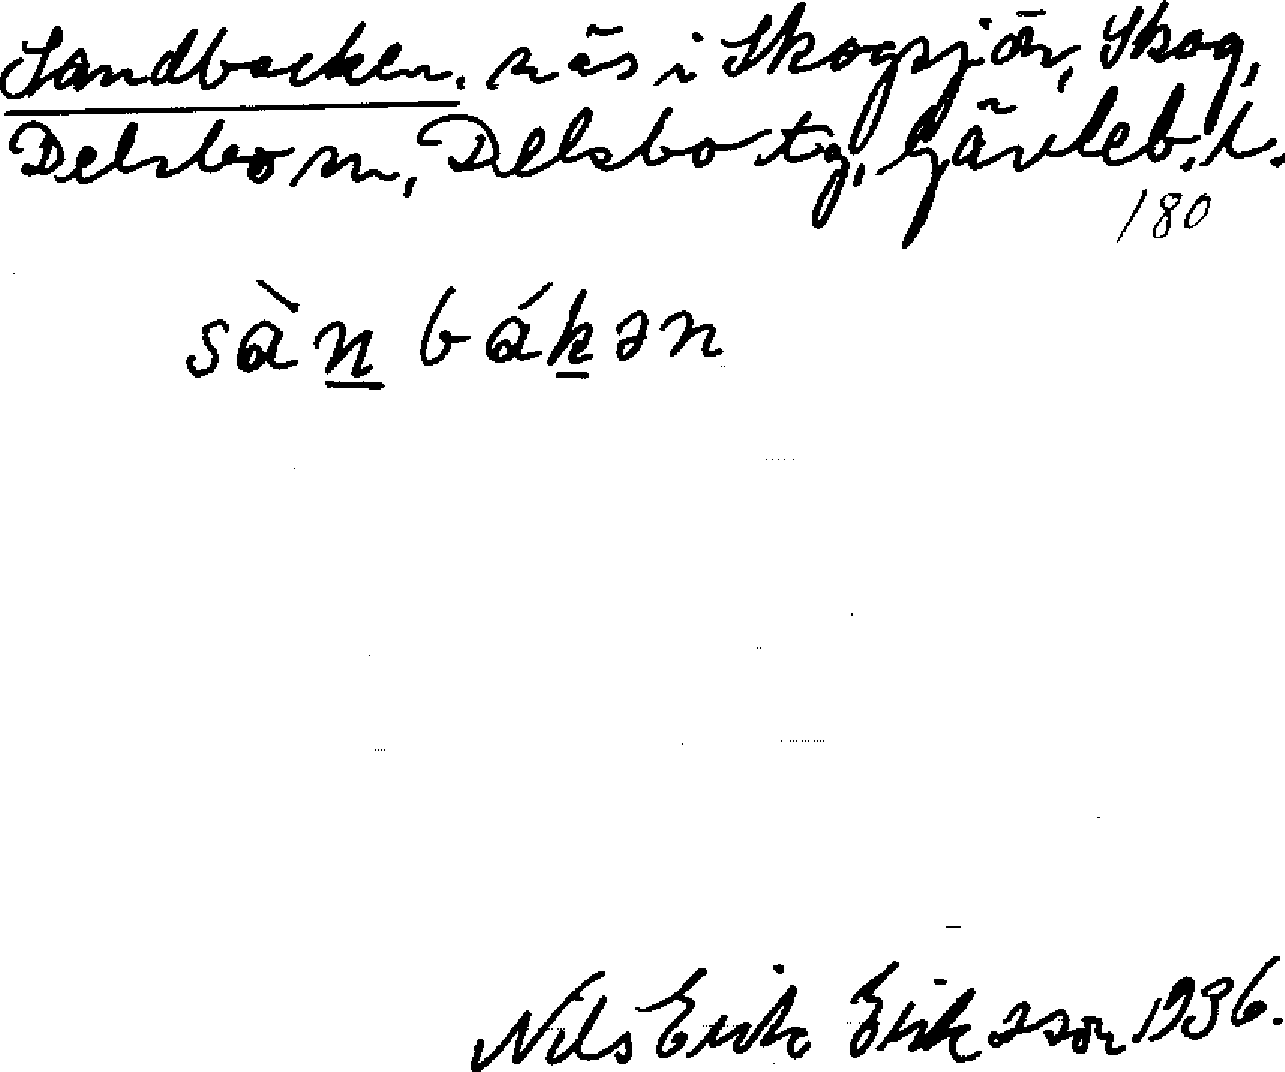 Sandbacken. näs i Skogsjön, Skog,
Delsbo sn, Delsbo tg, Gävleb. l.
180
sàn bákən
Nils Erik Eriksson 1936.